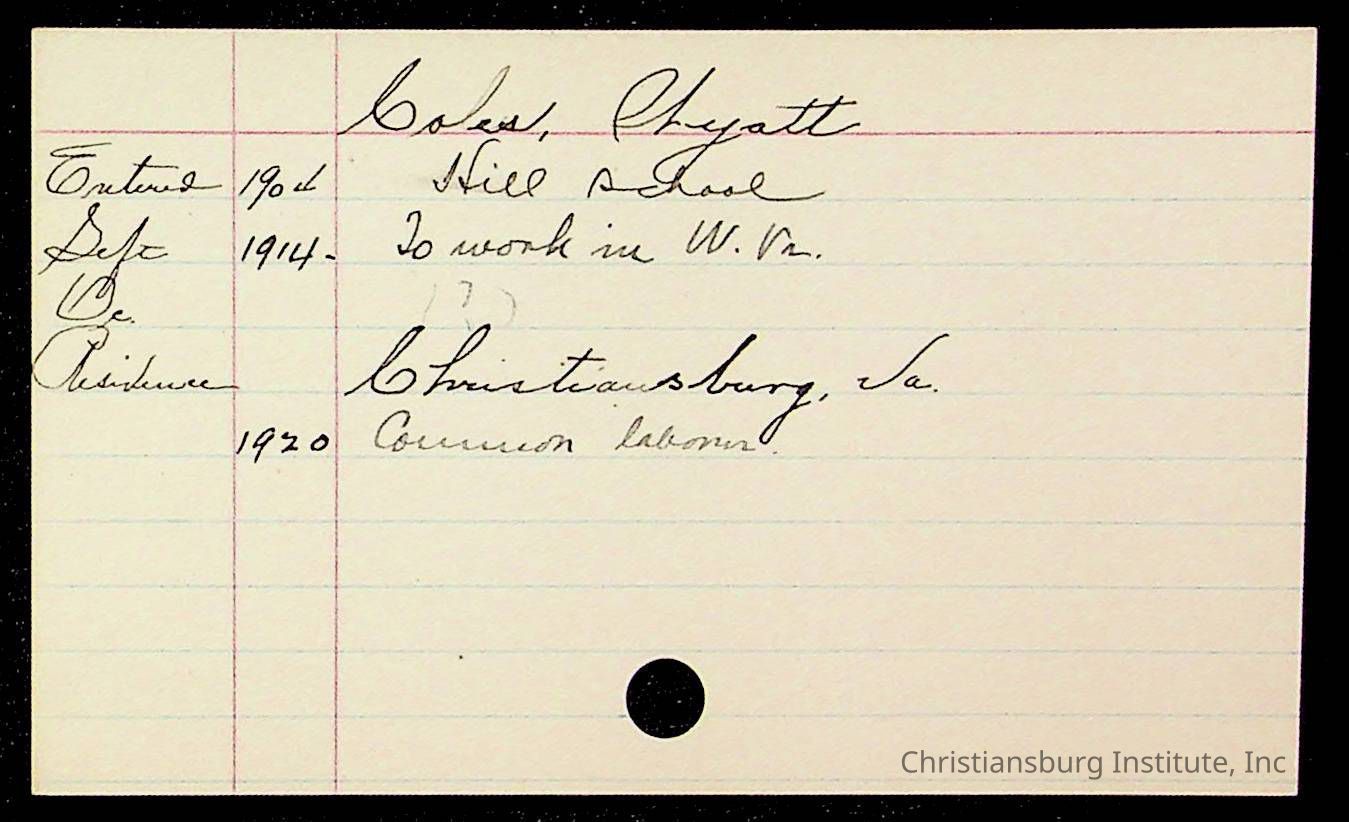 Coles, Phyatt
Entered 1904 Hill School
Left 1914- To work in W. Va.
Oc. (?)
Residence Christiansburg, Va.
1920 Common laborer.
Christiansburg Institute, Inc